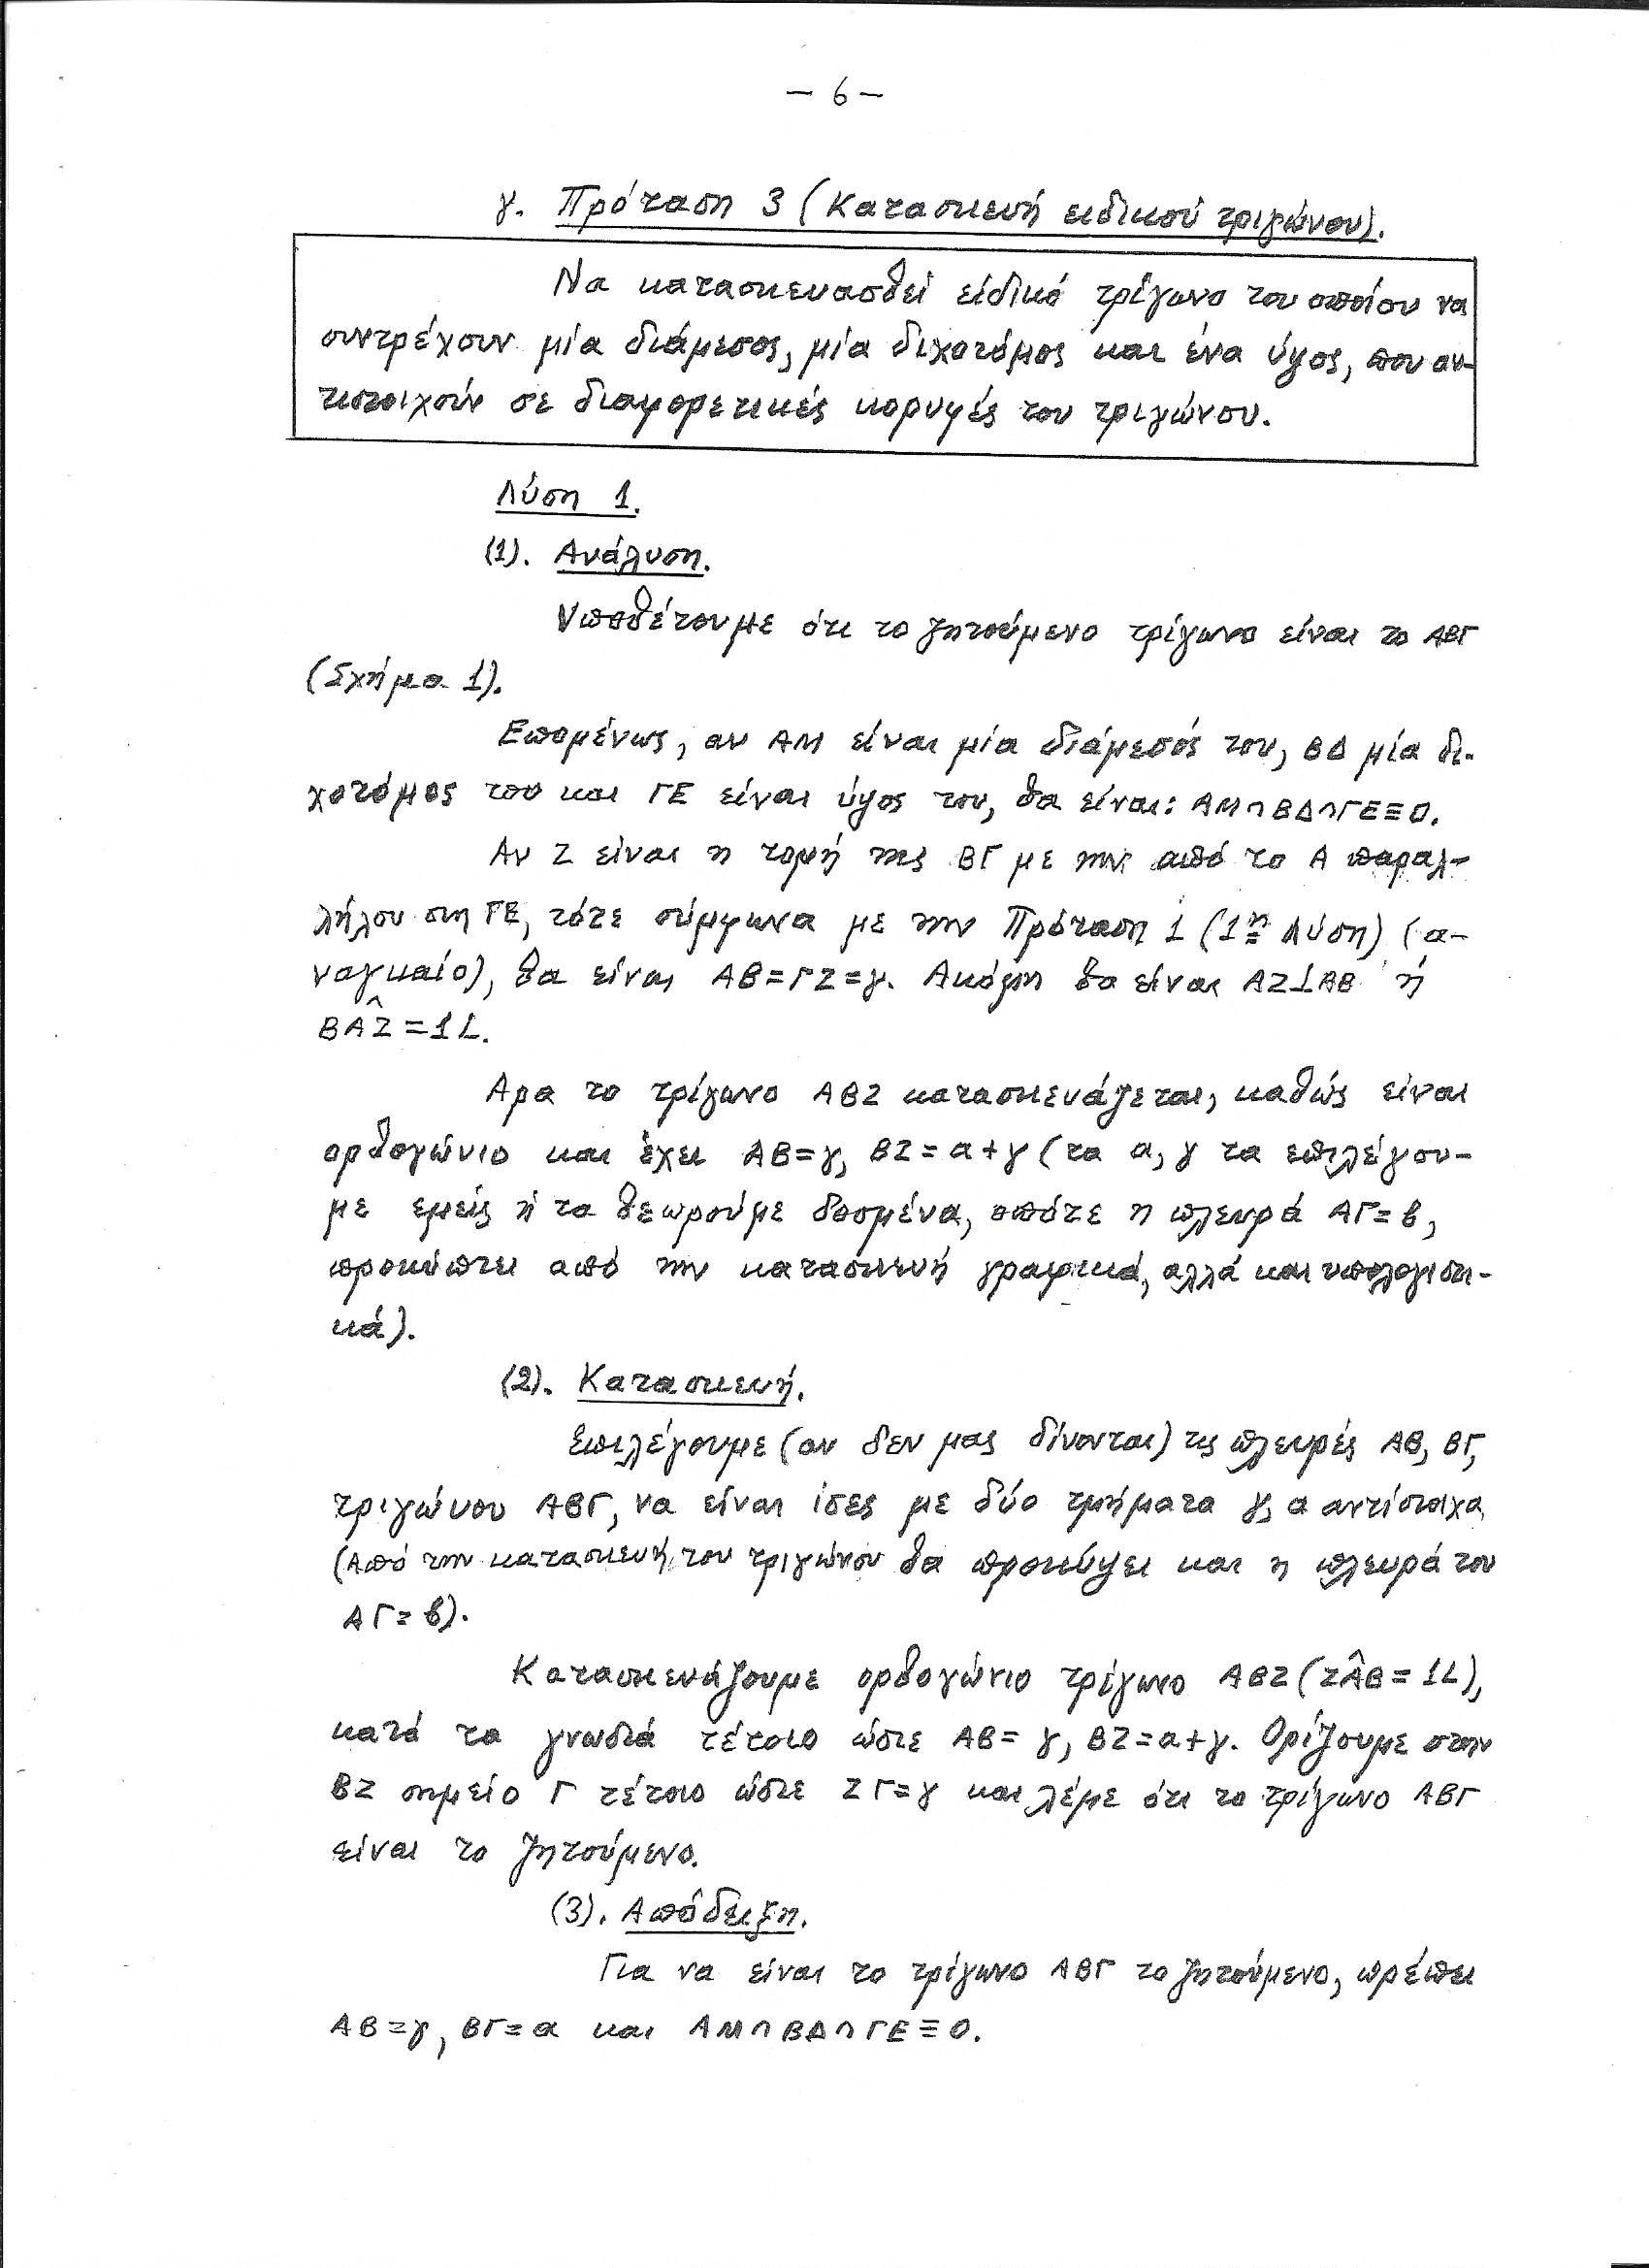 - 6 -
γ. Πρόταση 3 (Κατασκευή ειδικού τριγώνου).
Να κατασκευασθεί είδικό τρίγωνο του οποίου να
συντρέχουν μία διάμεσος, μία διχοτόμος και ένα ύψος, που αν-
τιστοιχούν σε διαφορετικές κορυφές του τριγώνου.
Λύση 1.
(1). Ανάλυση.
Υποθέτουμε ότι το ζητούμενο τρίγωνο είναι το ΑΒΓ
(Σχήμα 1).
Επομένως, αν ΑΜ είναι μία διάμεσός του, ΒΔ μία δι-
χοτόμος του και ΓΕ είναι ύψος του, θα είναι: ΑΜ∩ΒΔ∩ΓΕ≡Ο.
Αν Ζ είναι η τομή της ΒΓ με την από το Α παραλ-
λήλου στη ΓΕ, τότε σύμφωνα με την Πρόταση 1 (1η Λύση) (α-
ναγκαίο), θα είναι ΑΒ=ΓΖ=γ. Ακόμη θα είναι ΑΖ⊥ΑΒ ή
ΒΑ̂Ζ=1L.
Αρα το τρίγωνο ΑΒΖ κατασκευάζεται, καθώς είναι
ορθογώνιο και έχει ΑΒ=γ, ΒΖ=α+γ (τα α, γ τα επιλέγου-
με εμείς ή τα θεωρούμε δοσμένα, οπότε η πλευρά ΑΓ=β,
προκύπτει από την κατασκευή γραφικά, αλλά και υπολογιστι-
κά).
(2). Κατασκευή.
Επιλέγουμε (αν δεν μας δίνονται) τις πλευρές ΑΒ, ΒΓ,
τριγώνου ΑΒΓ, να είναι ίσες με δύο τμήματα γ, α αντίστοιχα
(Από την κατασκευή του τριγώνου θα προκύψει και η πλευρά του
ΑΓ=β).
Κατασκευάζουμε ορθογώνιο τρίγωνο ΑΒΖ (ΖΑ̂Β=1L),
κατά τα γνωστά τέτοιο ώστε ΑΒ=γ, ΒΖ=α+γ. Ορίζουμε στην
ΒΖ σημείο Γ τέτοιο ώστε ΖΓ=γ και λέμε ότι το τρίγωνο ΑΒΓ
είναι το ζητούμενο.
(3). Απόδειξη.
Για να είναι το τρίγωνο ΑΒΓ το ζητούμενο, πρέπει
ΑΒ=γ, ΒΓ=α και ΑΜ∩ΒΔ∩ΓΕ≡Ο.